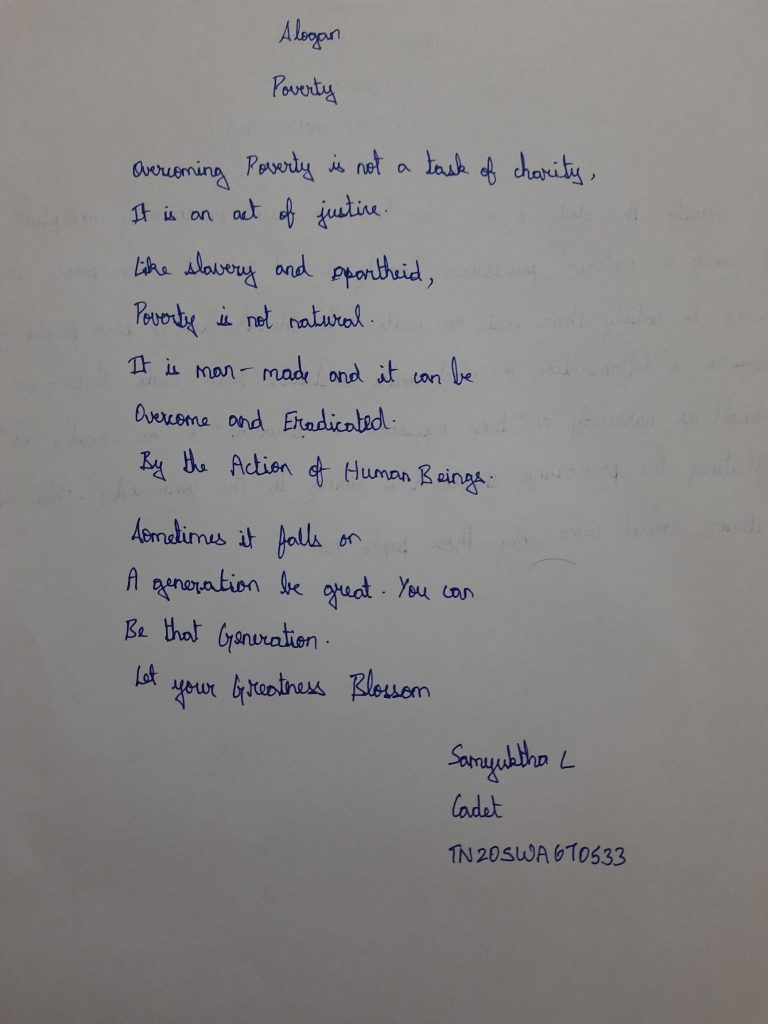 Slogan
Poverty
Overcoming Poverty is not a task of charity,
It is an act of justice.
Like slavery and apartheid,
Poverty is not natural.
It is man-made and it can be
Overcome and Eradicated.
By the Action of Human Beings.
Sometimes it falls on
A generation be great. You can
Be that Generation.
Let your Greatness Blossom
Samyuktha L
Cadet
TN20SWA6T0533